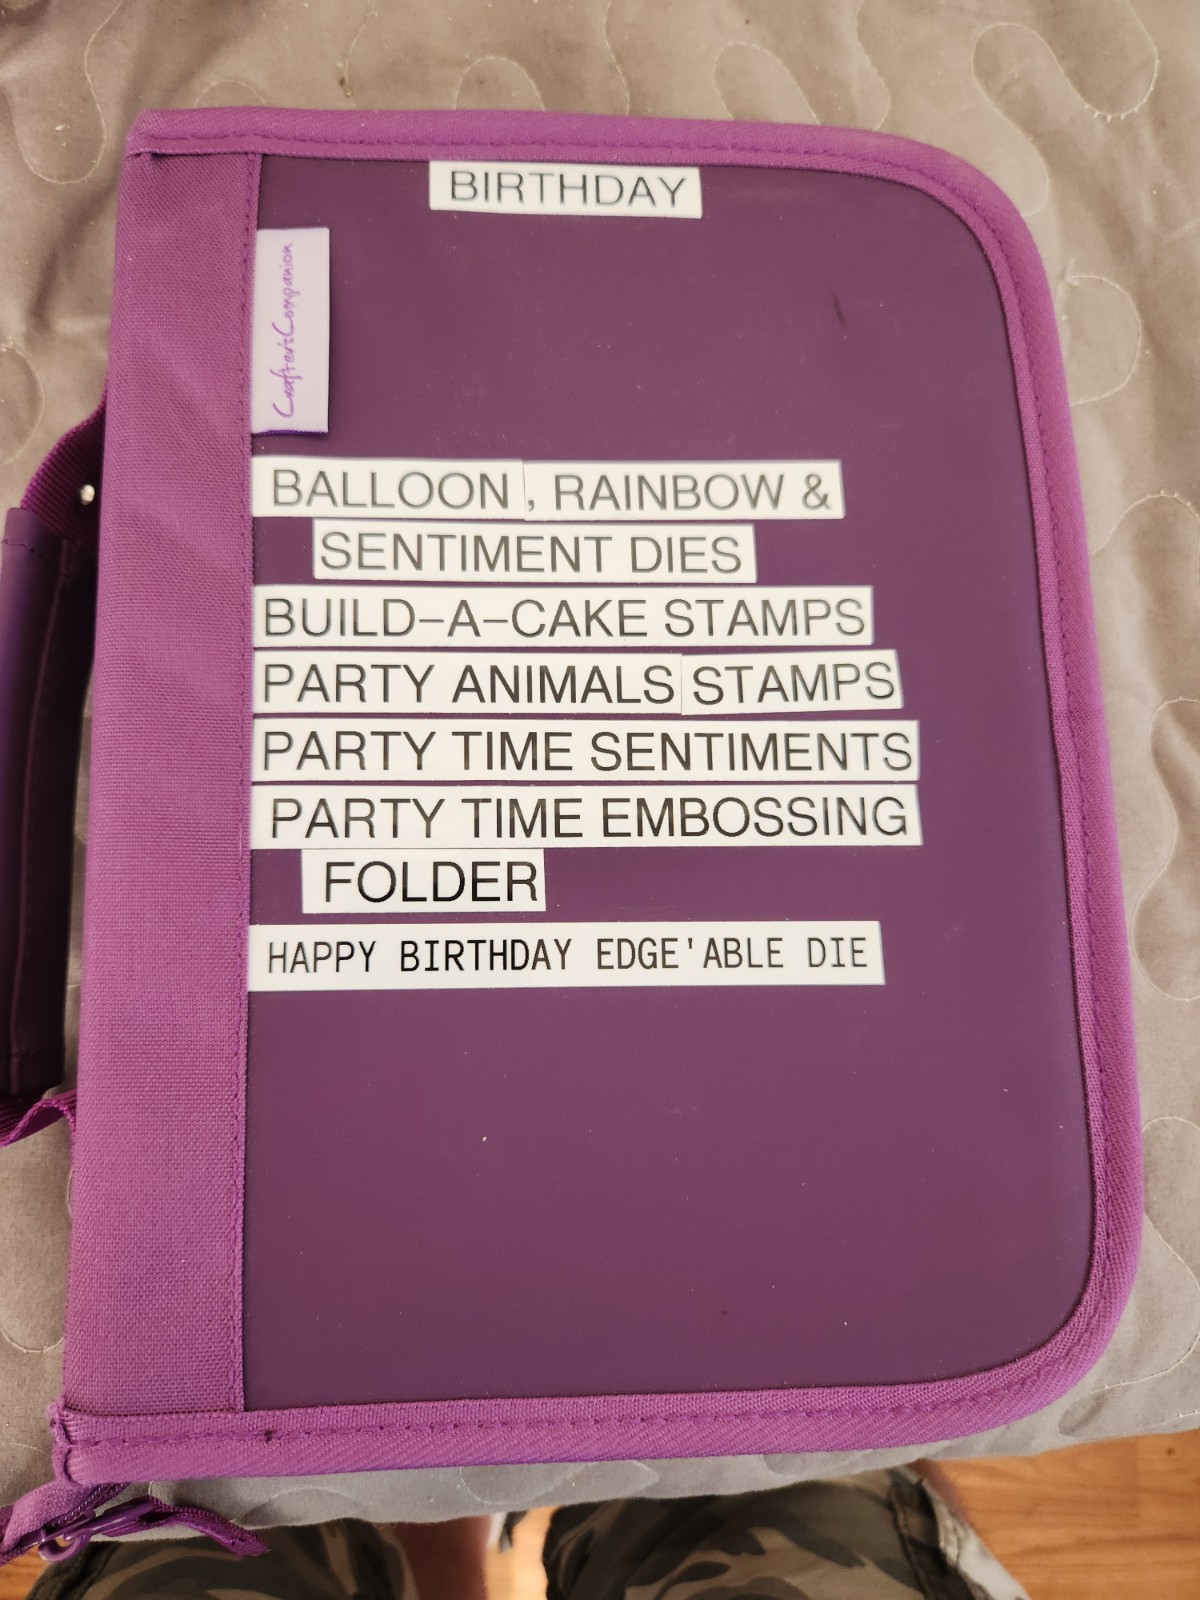 BIRTHDAY
Crafter'sCompanion
BALLOON, RAINBOW &
SENTIMENT DIES
BUILD-A-CAKE STAMPS
PARTY ANIMALS STAMPS
PARTY TIME SENTIMENTS
PARTY TIME EMBOSSING
FOLDER
HAPPY BIRTHDAY EDGE'ABLE DIE